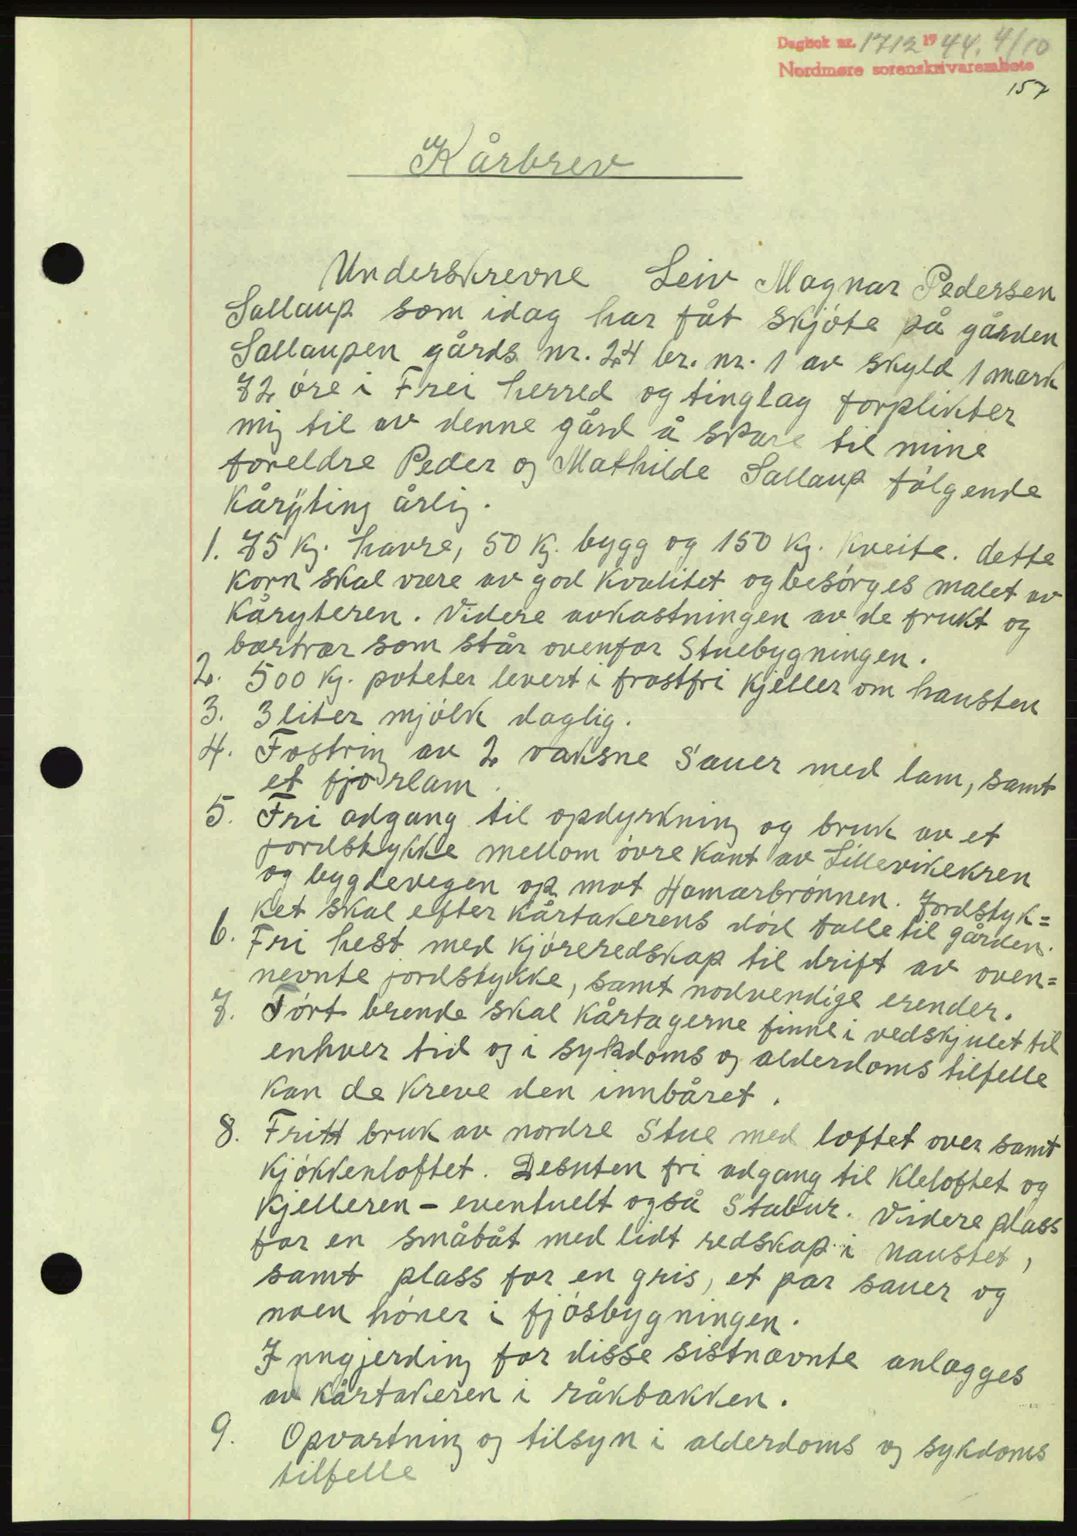 Dagbok nr. 1712 1944. 4/10
Nordmøre sorenskrivarembete
157
Kårbrev
Underskrevne Leiv Magnar Pedersen
Sallaup som idag har fåt skjöte på gården
Sallaupen gårds nr. 24 br. nr. 1 av skyld 1 mark
72 öre i Frei herred og tinglag forplikter
mig til av denne gård å svare til mine
foreldre Peder og Mathilde Sallaup fölgende
kåryting årlig.
1. 75 kg. havre, 50 kg. bygg og 150 kg. kveite. dette
korn skal være av god kvalitet og besörges malet av
kåryteren. Videre avkastningen av de frukt og
bærtrær som står ovenfor Stuebygningen.
2. 500 kg. poteter levert i frostfri kjeller om hausten
3. 3 liter mjölk daglig.
4. Fostring av 2 vaksne Sauer med lam, samt
et fjorlam.
5. Fri adgang til opdyrkning og bruk av et
jordstykke mellom övre kant av Lillevikekren
og bygdevegen op mot Hamarbrönnen. Jordstyk=
ket skal efter kårtakerens död falle til gården.
6. Fri hest med kjöreredskap til drift av oven=
nevnte jordstykke, samt nödvendige erender.
7. Tört brende skal kårtagerne finne i vedskjulet til
enhver tid og i sykdoms og alderdoms tilfelle
kan de kreve den innbåret.
8. Fritt bruk av nordre Stue med loftet over samt
kjökkenloftet. Desuten fri adgang til kleloftet og
kjelleren - eventuelt også Stabur. Videre plass
for en småbåt med lidt redskap i naustet,
samt plass for en gris, et par sauer og
noen höner i fjösbygningen.
Inngjerding for disse sistnævnte anlægges
av kårtakeren i råkbakken.
9. Opvartning og tilsyn i alderdoms og sykdoms
tilfelle